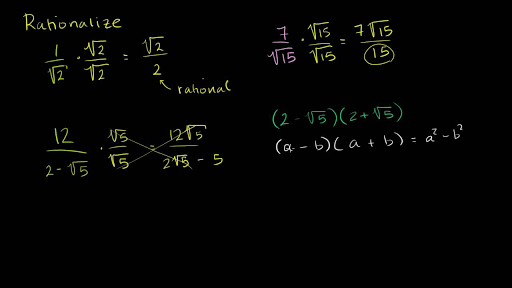 Rationalize
1/√2 · √2/√2 = √2/2
rational
7/√15 · √15/√15 = 7√15/15
12/(2-√5) · √5/√5 = 12√5/(2√5 - 5)
(2 - √5)(2 + √5)
(a - b)(a + b) = a² - b²